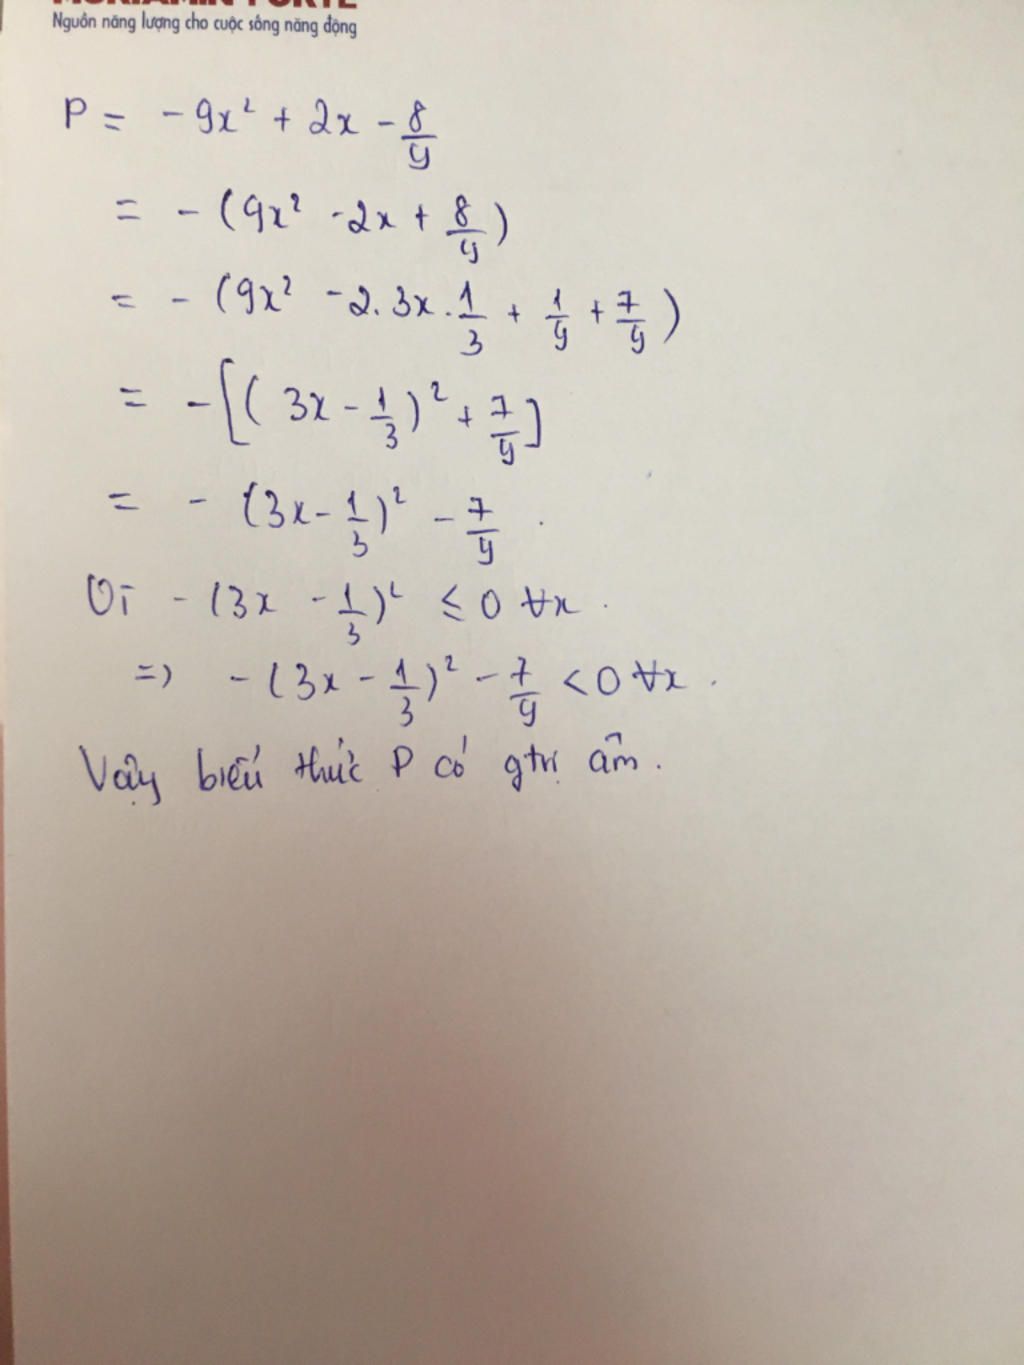 MORIAMIN FORTE
Nguồn năng lượng cho cuộc sống năng động
P = - 9x² + 2x - 8/9
= - (9x² - 2x + 8/9)
= - (9x² - 2. 3x . 1/3 + 1/9 + 7/9)
= - [(3x - 1/3)² + 7/9]
= - (3x - 1/3)² - 7/9 .
Vì - (3x - 1/3)² ≤ 0 ∀x .
=> - (3x - 1/3)² - 7/9 < 0 ∀x .
Vậy biểu thức P có gtrị âm .